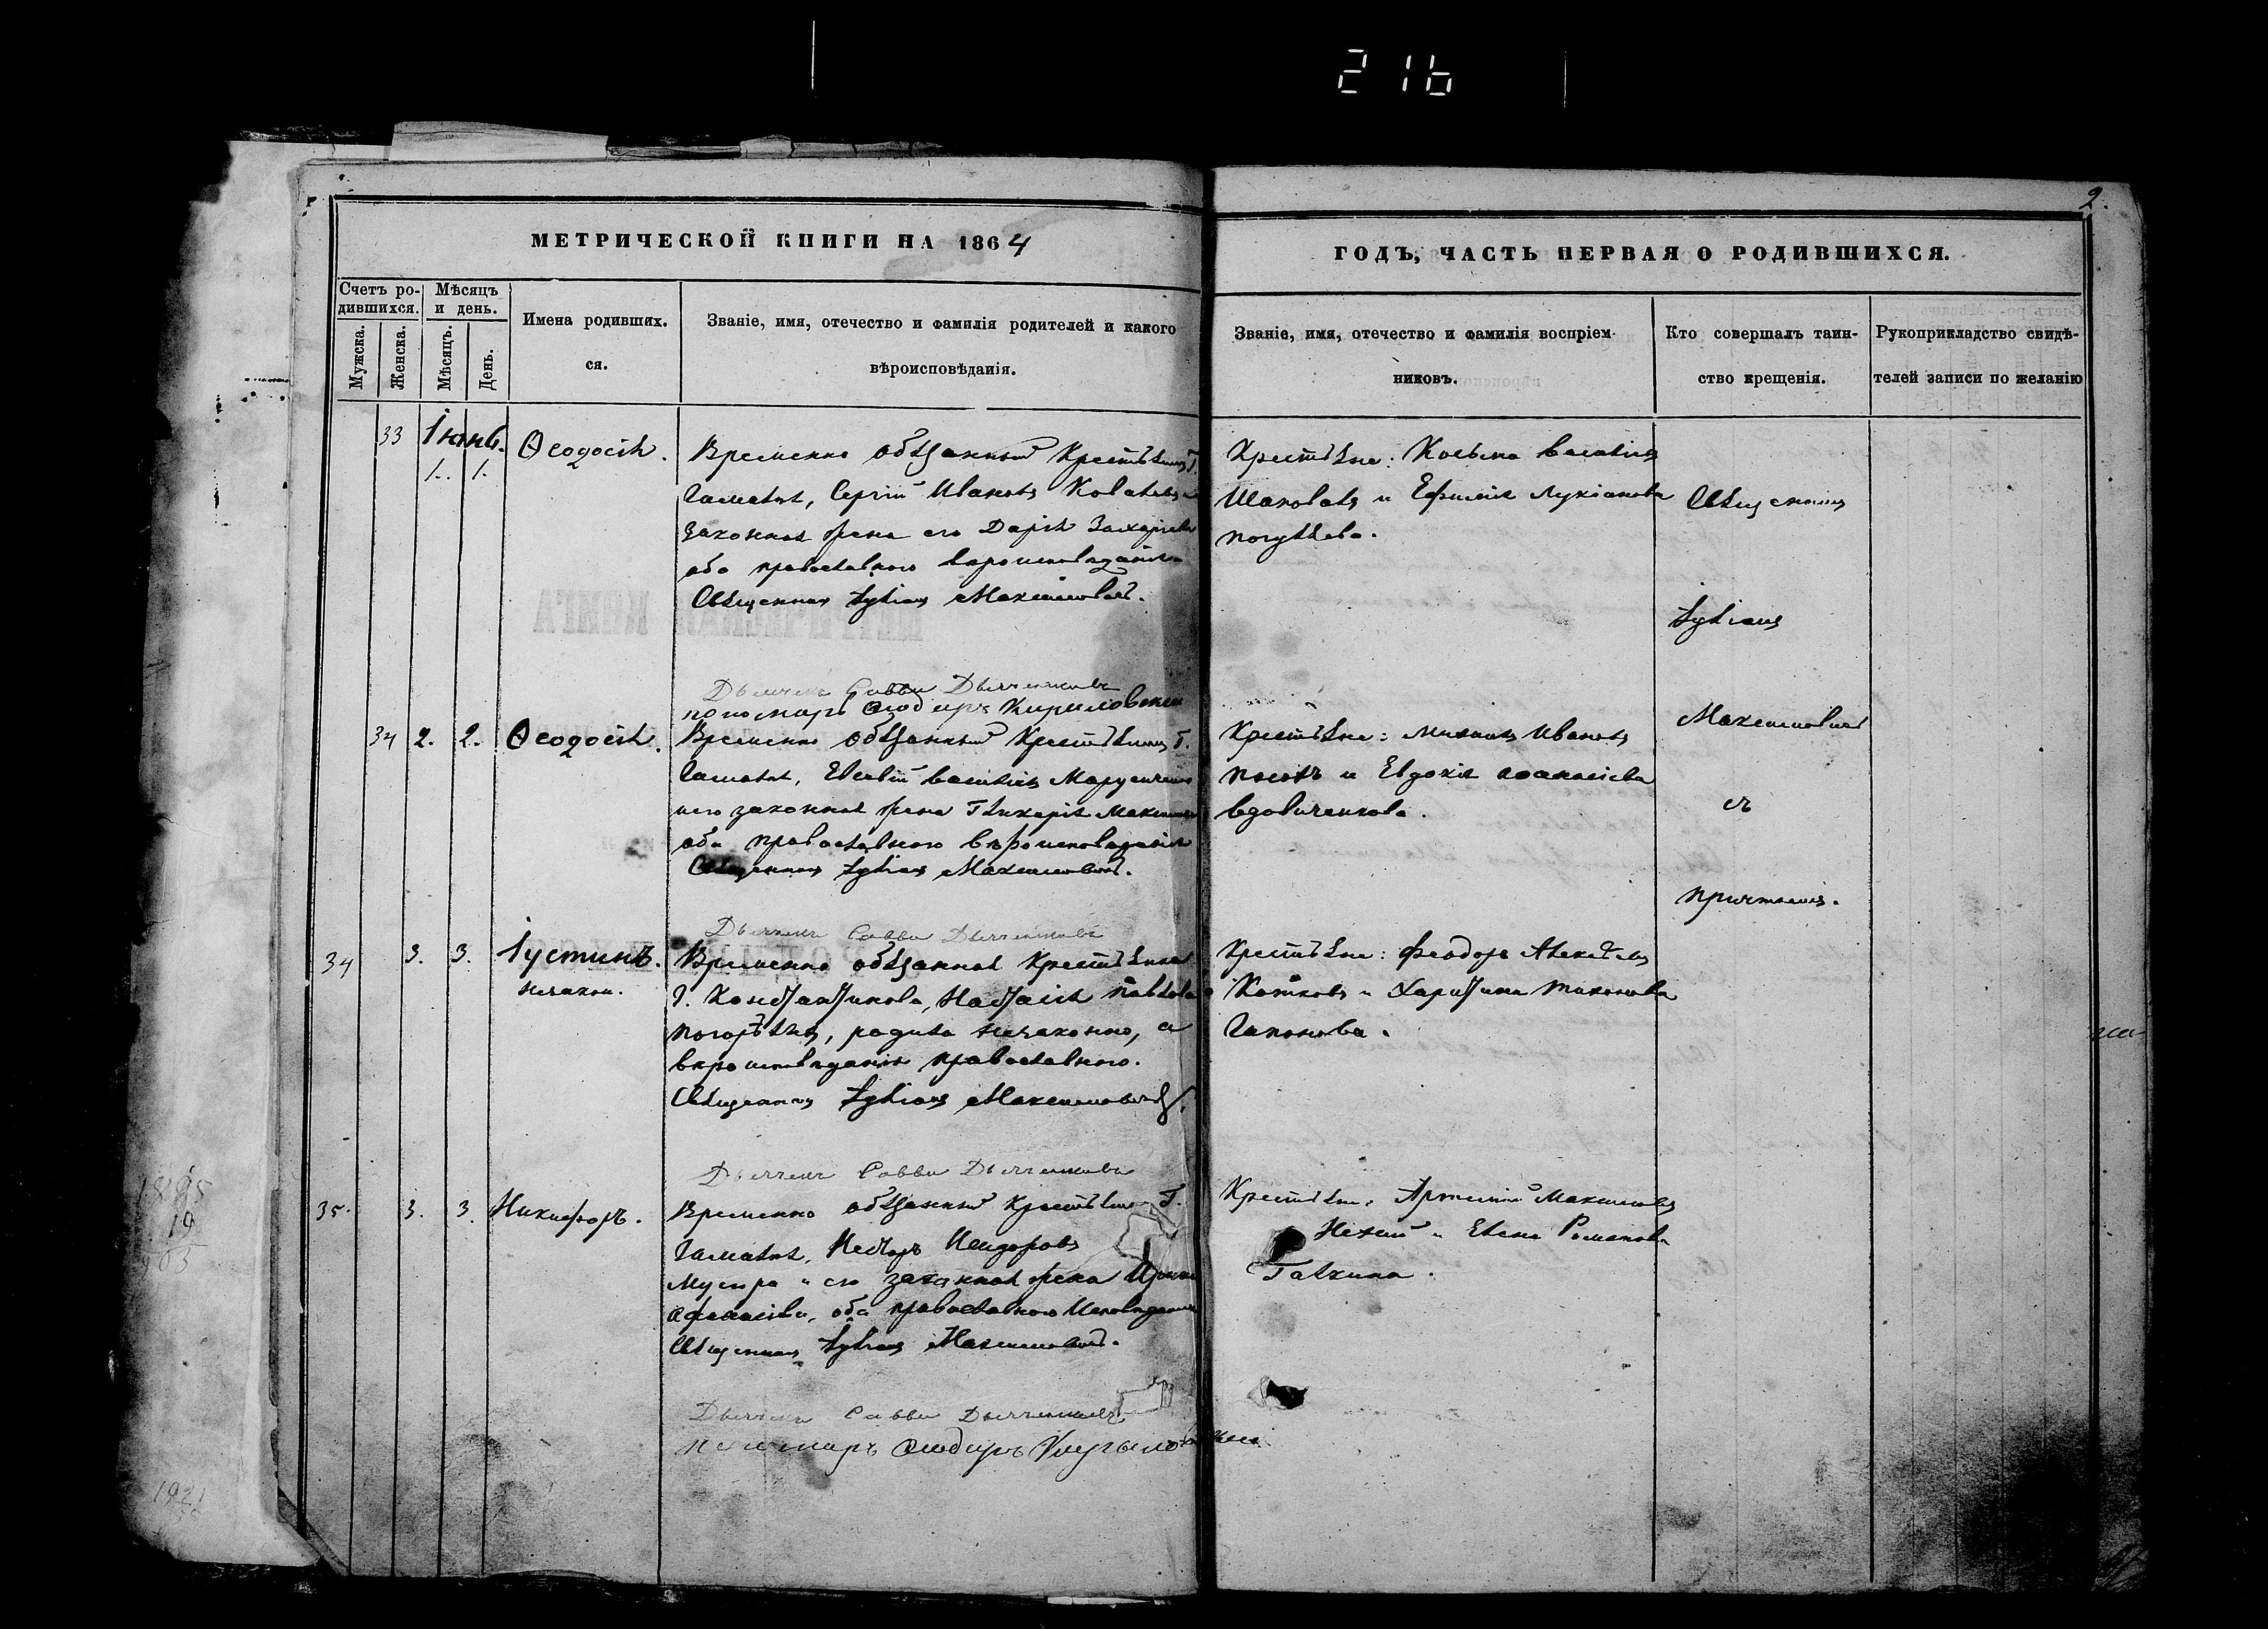 216
2.
МЕТРИЧЕСКОЙ КНИГИ НА 1864
ГОДЪ, ЧАСТЬ ПЕРВАЯ О РОДИВШИХСЯ.
Счетъ ро-
дившихся.
Мужска.
Женска.
Мѣсяцъ
и день.
Мѣсяцъ.
День.
Имена родивших.
ся.
Званіе, имя, отечество и фамилія родителей и какого
вѣроисповѣданія.
Званіе, имя, отечество и фамилія воспріем
никовъ.
Кто совершалъ таин-
ство крещенія.
Рукоприкладство свидѣ-
телей записи по желанію
33 Іюнь.
1. 1.
Ѳеодосія.
Временно обязанный Крестьянинъ Г.
Гамалѣя, Сергій Ивановъ
законная жена его Дарія Захаріева
оба православнаго вѣроисповѣданія
Священникъ Іуліанъ Максимовичъ.
Дьячекъ Савва Дьяченковъ
пономарь Ѳеодоръ Кириловскій
Крестьяне: Косьма Василіевъ
Шаповалъ и Ефимія Лукіанова
34 2. 2. Ѳеодосія.
Временно обязанный Крестьянинъ Г.
Гамалѣя, Василіевъ
его законная жена Гликерія Максимова
оба православнаго вѣроисповѣданія
Священникъ Іуліанъ Максимовичъ.
Дьячекъ Савва Дьяченковъ
Крестьяне: Михаилъ Ивановъ
и Евдокія Аѳанасіева
Вдовиченкова.
34 3. 3. Іустинъ.
незакон.
Временно обязанная Крестьянка
Г. Константинова, Наталія Павлова
родила незаконно, а
вѣроисповѣданія православнаго.
Священникъ Іуліанъ Максимовичъ.
Дьячекъ Савва Дьяченковъ
Крестьяне: Феодоръ Алексѣевъ
и Харитина Тихонова
Гапонова.
35. 3. 3. Никифоръ.
Временно обязанный Крестьянинъ Г.
Гамалѣя, Несторъ Исидоровъ
и его законная жена Ирина
Афанасіева, оба православнаго Исповѣданія
Священникъ Іуліанъ Максимовичъ.
Дьячекъ Савва Дьяченковъ
пономарь Ѳеодоръ Кириловскій
Крестьяне: Артемій Максимовъ
и Елена Романова
Галкина.
Священникъ
Іуліанъ
Максимовичъ
съ
причтомъ.